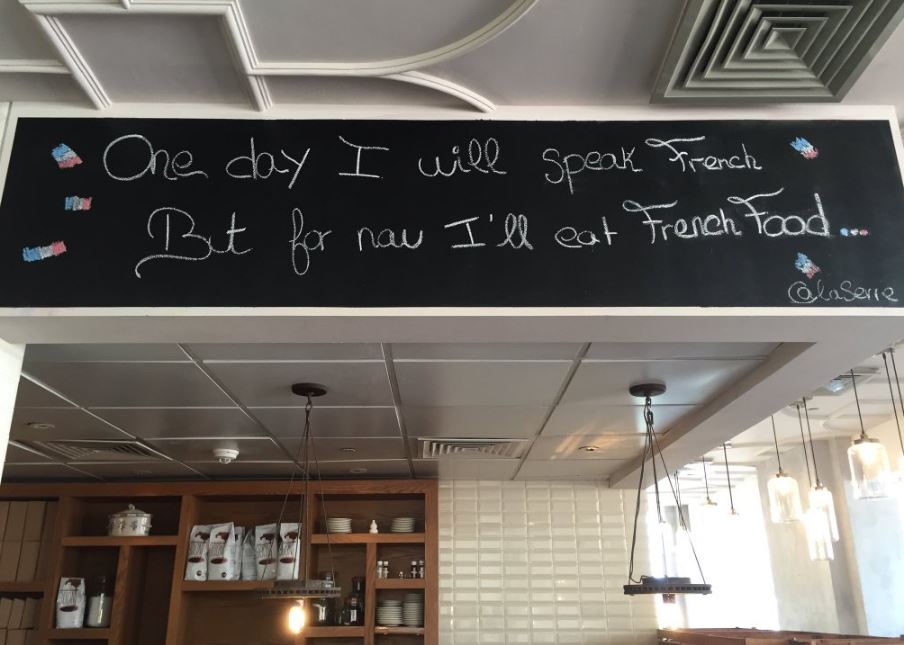 One day I will speak French
But for now I'll eat French Food...
@laSerre